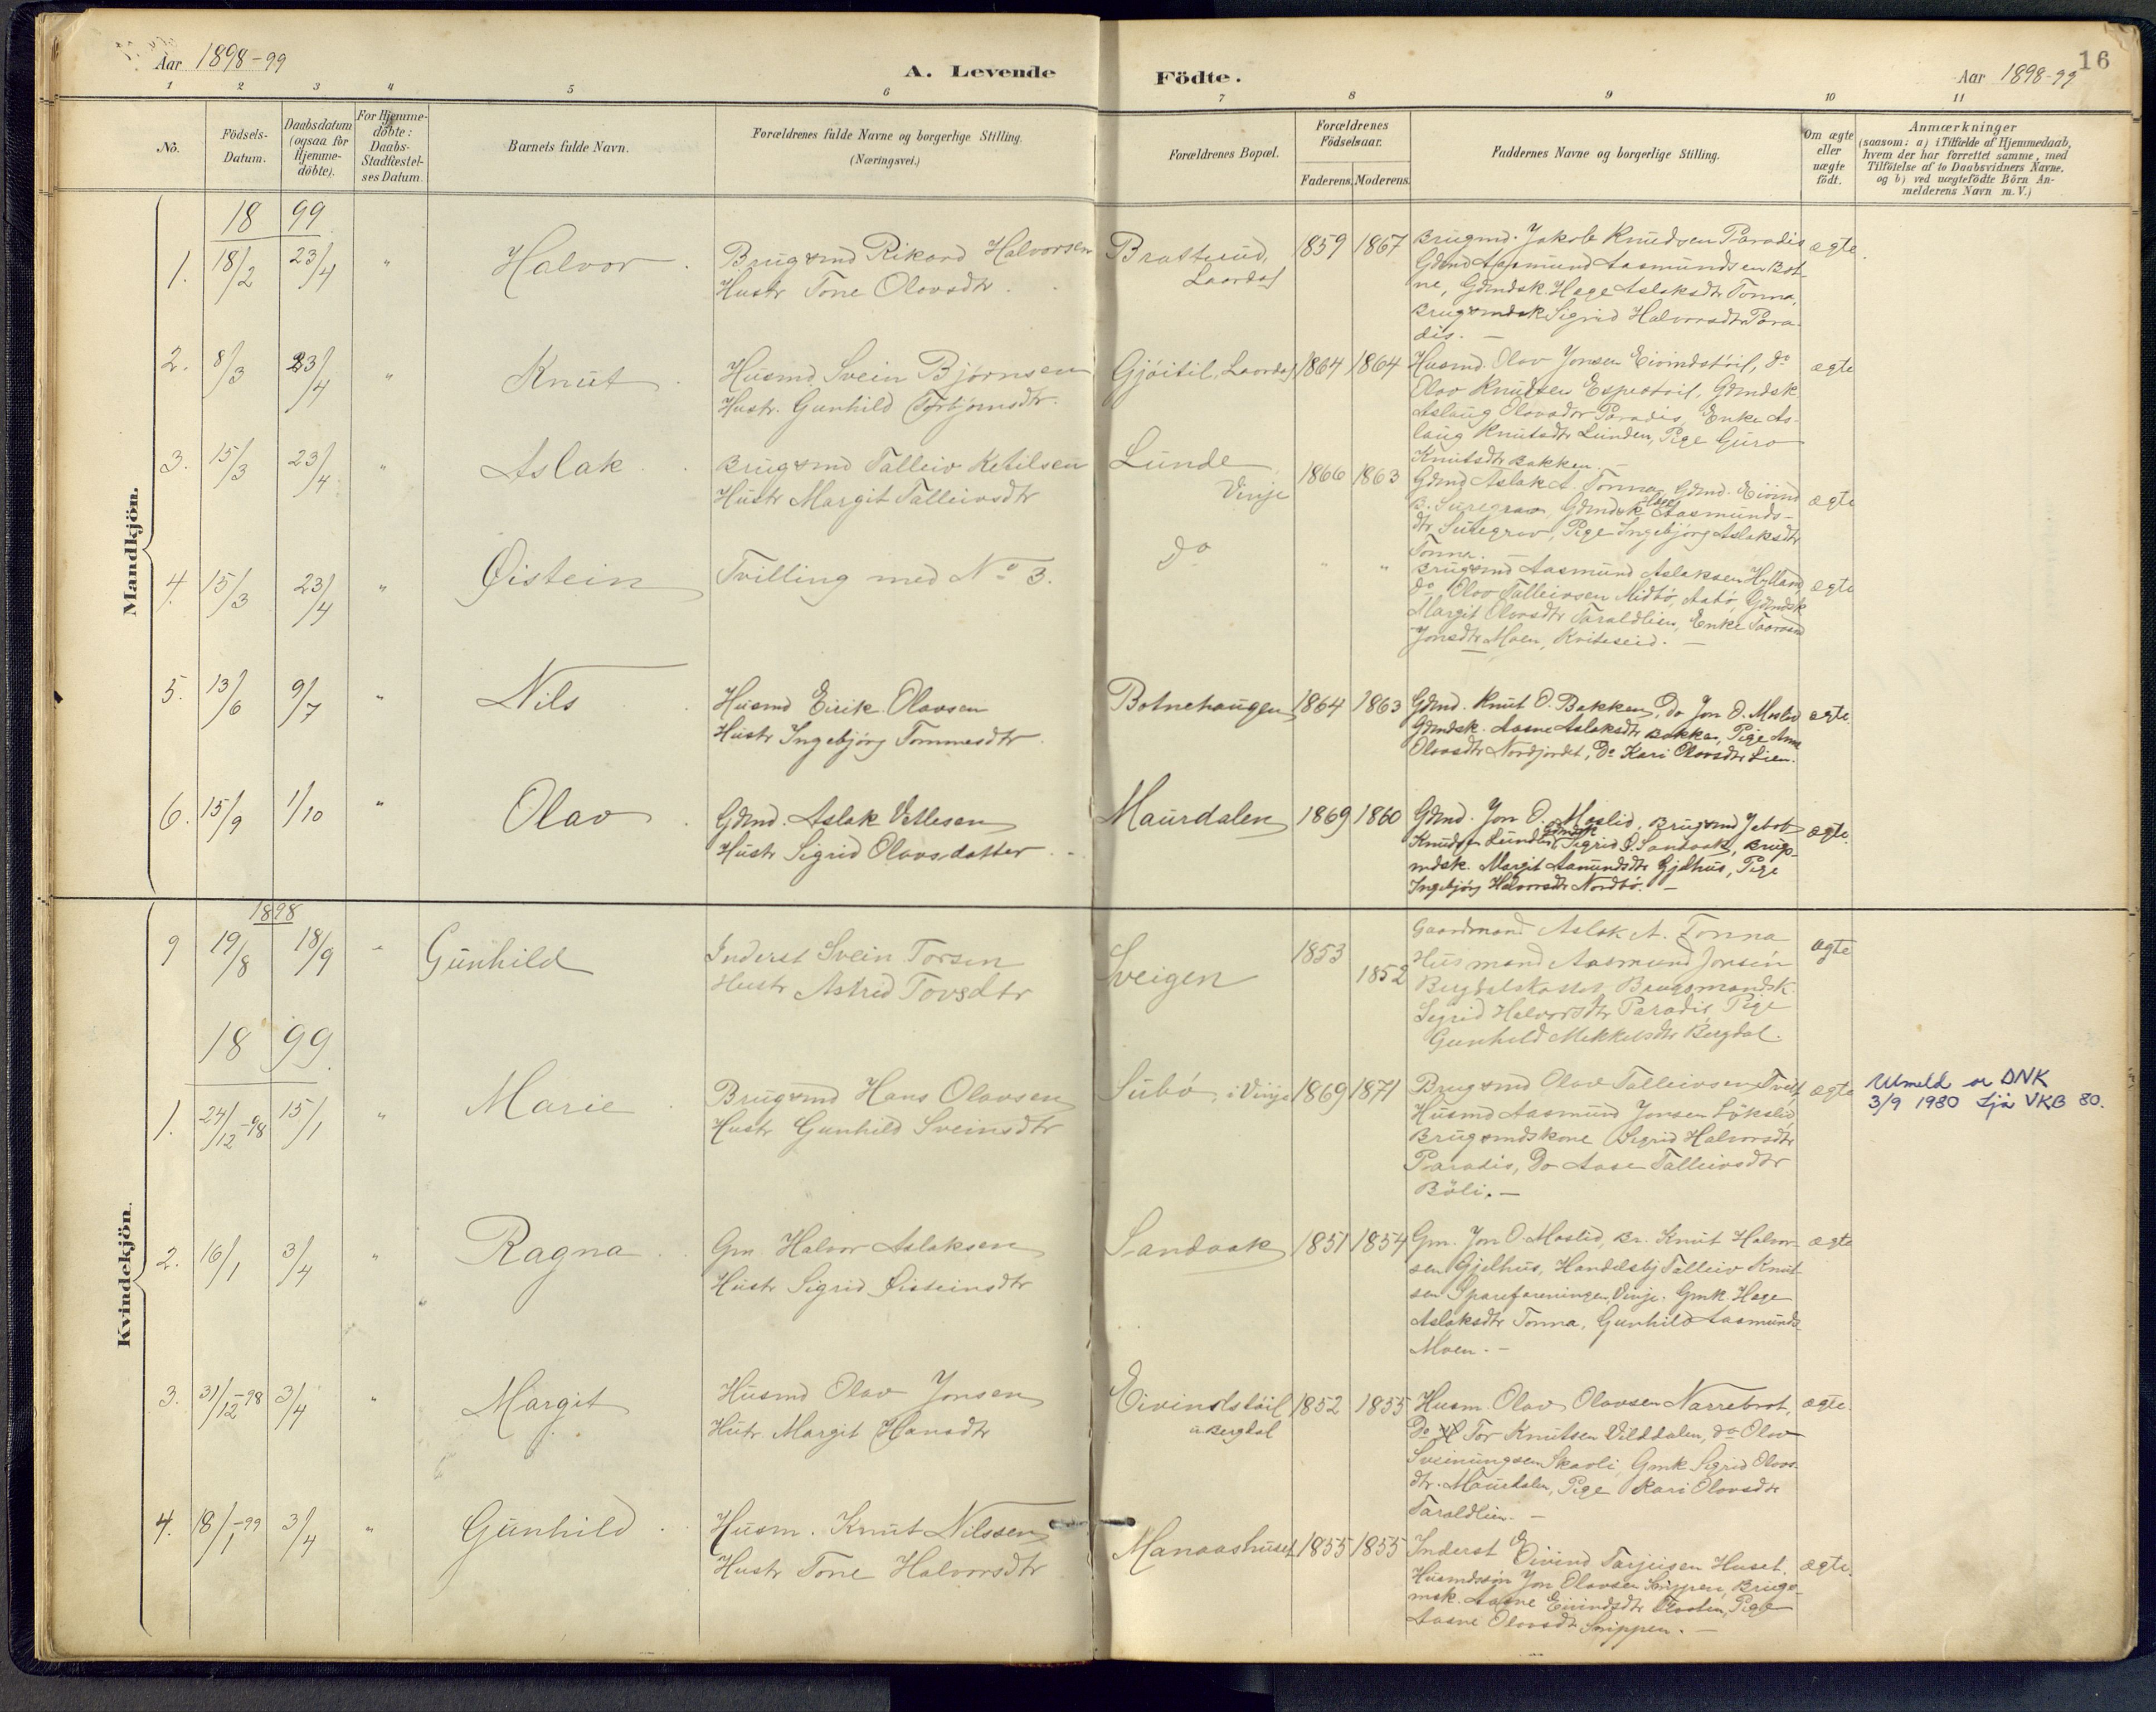 Aar 1898-99
A. Levende Födte.
Aar 1898-99
16
1 2 3 4 5 6 7 8 9 10 11
No.
Födsels-Datum.
Daabsdatum (ogsaa for Hjemme-döbte).
For Hjemme-döbte: Daabs-Stadfæstel-ses Datum.
Barnets fulde Navn.
Forældrenes fulde Navne og borgerlige Stilling.
(Næringsvei.)
Forældrenes Bopæl.
Forældrenes Födselsaar.
Faderens. Moderens.
Faddernes Navne og borgerlige Stilling.
Om ægte eller uægte födt.
Anmærkninger
(saasom: a) i Tilfælde af Hjemmedaab,
hvem der har forrettet samme, med
Tilföielse af to Daabsvidners Navne,
og b) ved uægtefödte Börn An-
melderens Navn m. V.)
Mandkjön.
18 99
1. 18/2 23/4 " Halvor. Brugsmd Rikard Halvorsen
Hustr Tone Olavsdtr.
Brattuund, Laardal 1859 1867
Brugmd. Jakob Knudsen Paradis
Gdmd Aasmund Aasmundsen Bot-
ne, Gdmdsk. Hæge Aslaksdtr Tonna,
Brugsmdsk Sigrid Halvorsdtr Para-
dis. —
ægte.
2. 8/3 23/4 " Knut. Husmd. Svein Bjørnsen
Hustr. Gunhild Torbjørnsdtr.
Gjöitil, Laardal 1864 1864
Husmd. Olav Jonsen Eivindstöil, do
Olav Knudsen Espestöil, Gdmdsk
Aslaug Olavsdtr Paradis, Enke As-
laug Knutsdtr Lunden, Pige Guro
Knutsdtr Bakken. —
ægte
3. 15/3 23/4 " Aslak. Brugsmd Talleiv Ketilsen
Hustr Margit Talleivsdtr
Lunde Vinje 1866 1863
Gdmd Aslak A. Tonna, Gdmd. Eivind
B. Suregrav, Gdmdsk Aasmunds-
dtr Suregrav, Pige Ingebjörg Aslaksdtr
Tonna. —
ægte
4. 15/3 23/4 " Øistein Tvilling med No 3.
Do " "
Brugsmd Aasmund Aslaksen Hylland,
do Olav Talleivsen Midbö, Aabö, Gdmdsk
Margit Olavsdtr Taraldlien, Enke
Jonsdtr Moen, Kviteseid. —
ægte
5. 13/6 9/7 " Nils. Husmd Eirik Olavsen
Hustr Ingebjörg Tommesdtr.
Botnehaugen 1864 1863
Gdmd. Knut O. Bakken, Do Jon O. Moslid
Gdmdsk. Aasne Aslaksdtr Bakka, Pige Anne
Olavsdtr Nordjordet, Do Kari Olavsdtr Lien.
ægte.
6. 15/9 1/10 " Olav. Gdmd. Aslak Vetlesen
Hustr Sigrid Olavsdatter. -
Maurdalen 1869 1860
Gdmd. Jon O. Moslid, Brugsmd Jakob
Knudsen Lunden, Gdmdsk Sigrid O. Sandvak, Brugs-
mdsk. Margit Aamundsdtr Gjelhus, Pige
Ingebjörg Halvorsdtr Nordbö. —
ægte.
Kvindekjön.
1898
9 19/8 18/9 - Gunhild Inderst Svein Torsen
Hustr Astrid Tovsdtr
Sveigen 1853 1852
Gaardmand Aslak A. Tonna
Husmand Aasmund Jonsen
Brugsmandsk.
Sigrid Halvorsdtr Paradis, Pige
Gunhild Mekkelsdtr Bergdal.
ægte
18 99
1. 24/12-98 15/1 " Marie Brugsmd Hans Olavsen
Hustr Gunhild Sveinsdtr
Subö, i Vinje 1869 1871
Brugsmd Olav Talleivsen Tveit,
Husmd Aasmund Jonsen Lökslid,
Brugsmdskone Sigrid Halvorsdtr
Paradis, Do Aase Talleivsdtr
Böli. —
ægte
Utmeld or DNK
3/9 1980 sjå VKB 80.
2. 16/1 3/4 " Ragna. Gm. Halvor Aslaksen
Hustr Sigrid Øisteinsdtr
Sandvak 1851 1854
Gm. Jon O. Moslid, Br. Knut Halvor-
sen Gjelhus, Handelsbj Talleiv Knut-
sen Spareforeningen, Vinje. Gmk. Hæge
Aslaksdtr Tonna, Gunhild Aasmundsd
Moen. —
ægte
3. 31/12-98 3/4 " Margit Husmd Olav Jonsen
Hutr. Margit Hansdtr
Eivindstöil u Bergdal 1852 1855
Husm. Olav Olavsen Narrebrot,
Do Tor Knutsen Vilddalen, do Olav
Sveinungsen Skavli, Gmk Sigrid Olavs-
dtr. Maurdalen, Pige Kari Olavsdtr
Taraldlien. —
ægte.
4. 18/1-99 3/4 " Gunhild. Husm. Knut Nilssen
Hustr Tone Halvorsdtr
Manaashuset 1855 1855
Inderst Eivind Tarjeisen Huset.
Husmdssön Jon Olavsen Snippen, Brugs-
msk. Aasne Eivindsdtr Pige
Aasne Olavsdtr Snippen. —
ægte.